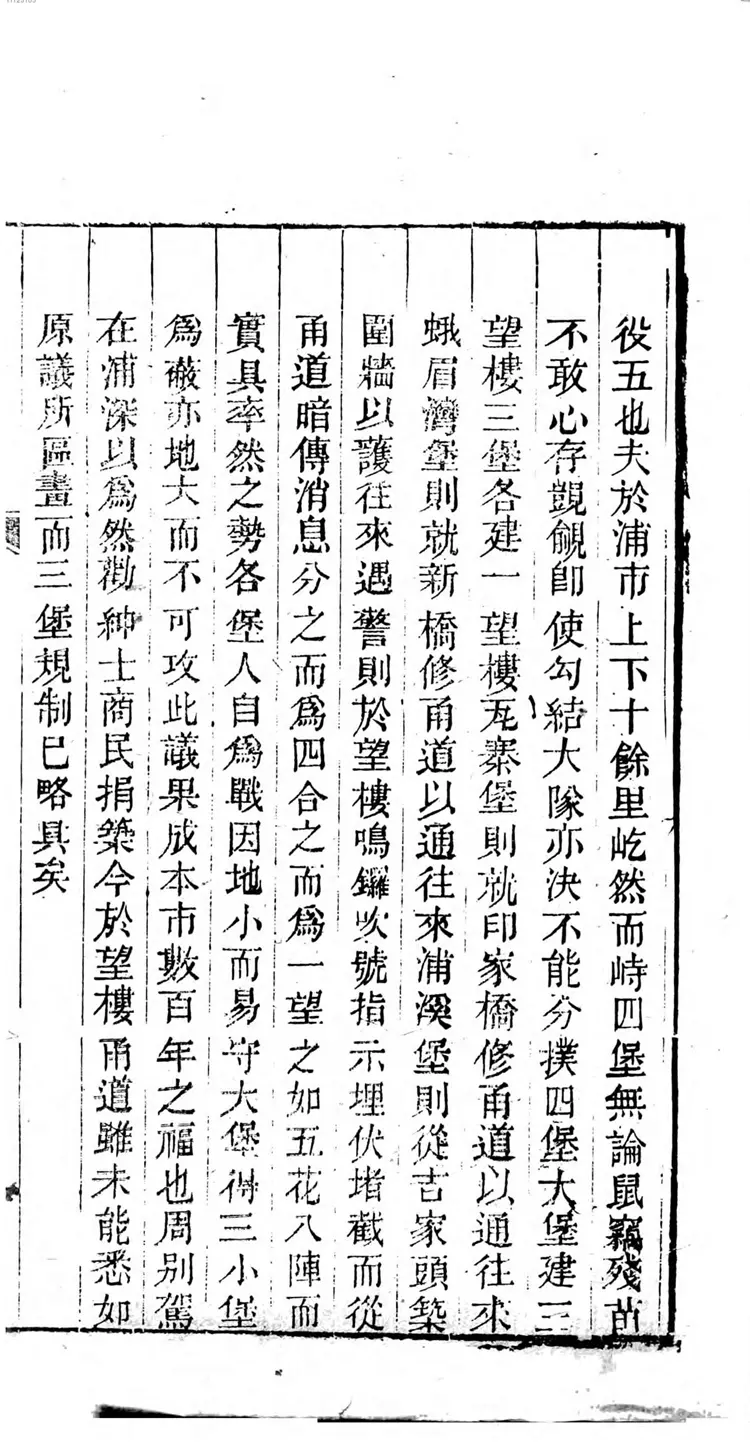 役五也夫於浦市上下十餘里屹然而峙四堡無論鼠竊殘苗
不敢心存覬覦卽使勾結大隊亦決不能分撲四堡大堡建三
望樓三堡各建一望樓瓦寨堡則就印家橋修甬道以通往來
蛾眉灣堡則就新橋修甬道以通往來浦溪堡則從吉家頭築
圍牆以護往來遇警則於望樓鳴鑼吹號指示埋伏堵截而從
甬道暗傳消息分之而爲四合之而爲一望之如五花八陣而
實具率然之勢各堡人自爲戰因地小而易守大堡得三小堡
爲蔽亦地大而不可攻此議果成本市數百年之福也周別駕
在浦深以爲然勸紳士商民捐築今於望樓甬道雖未能悉如
原議所區畫而三堡規制已略具矣